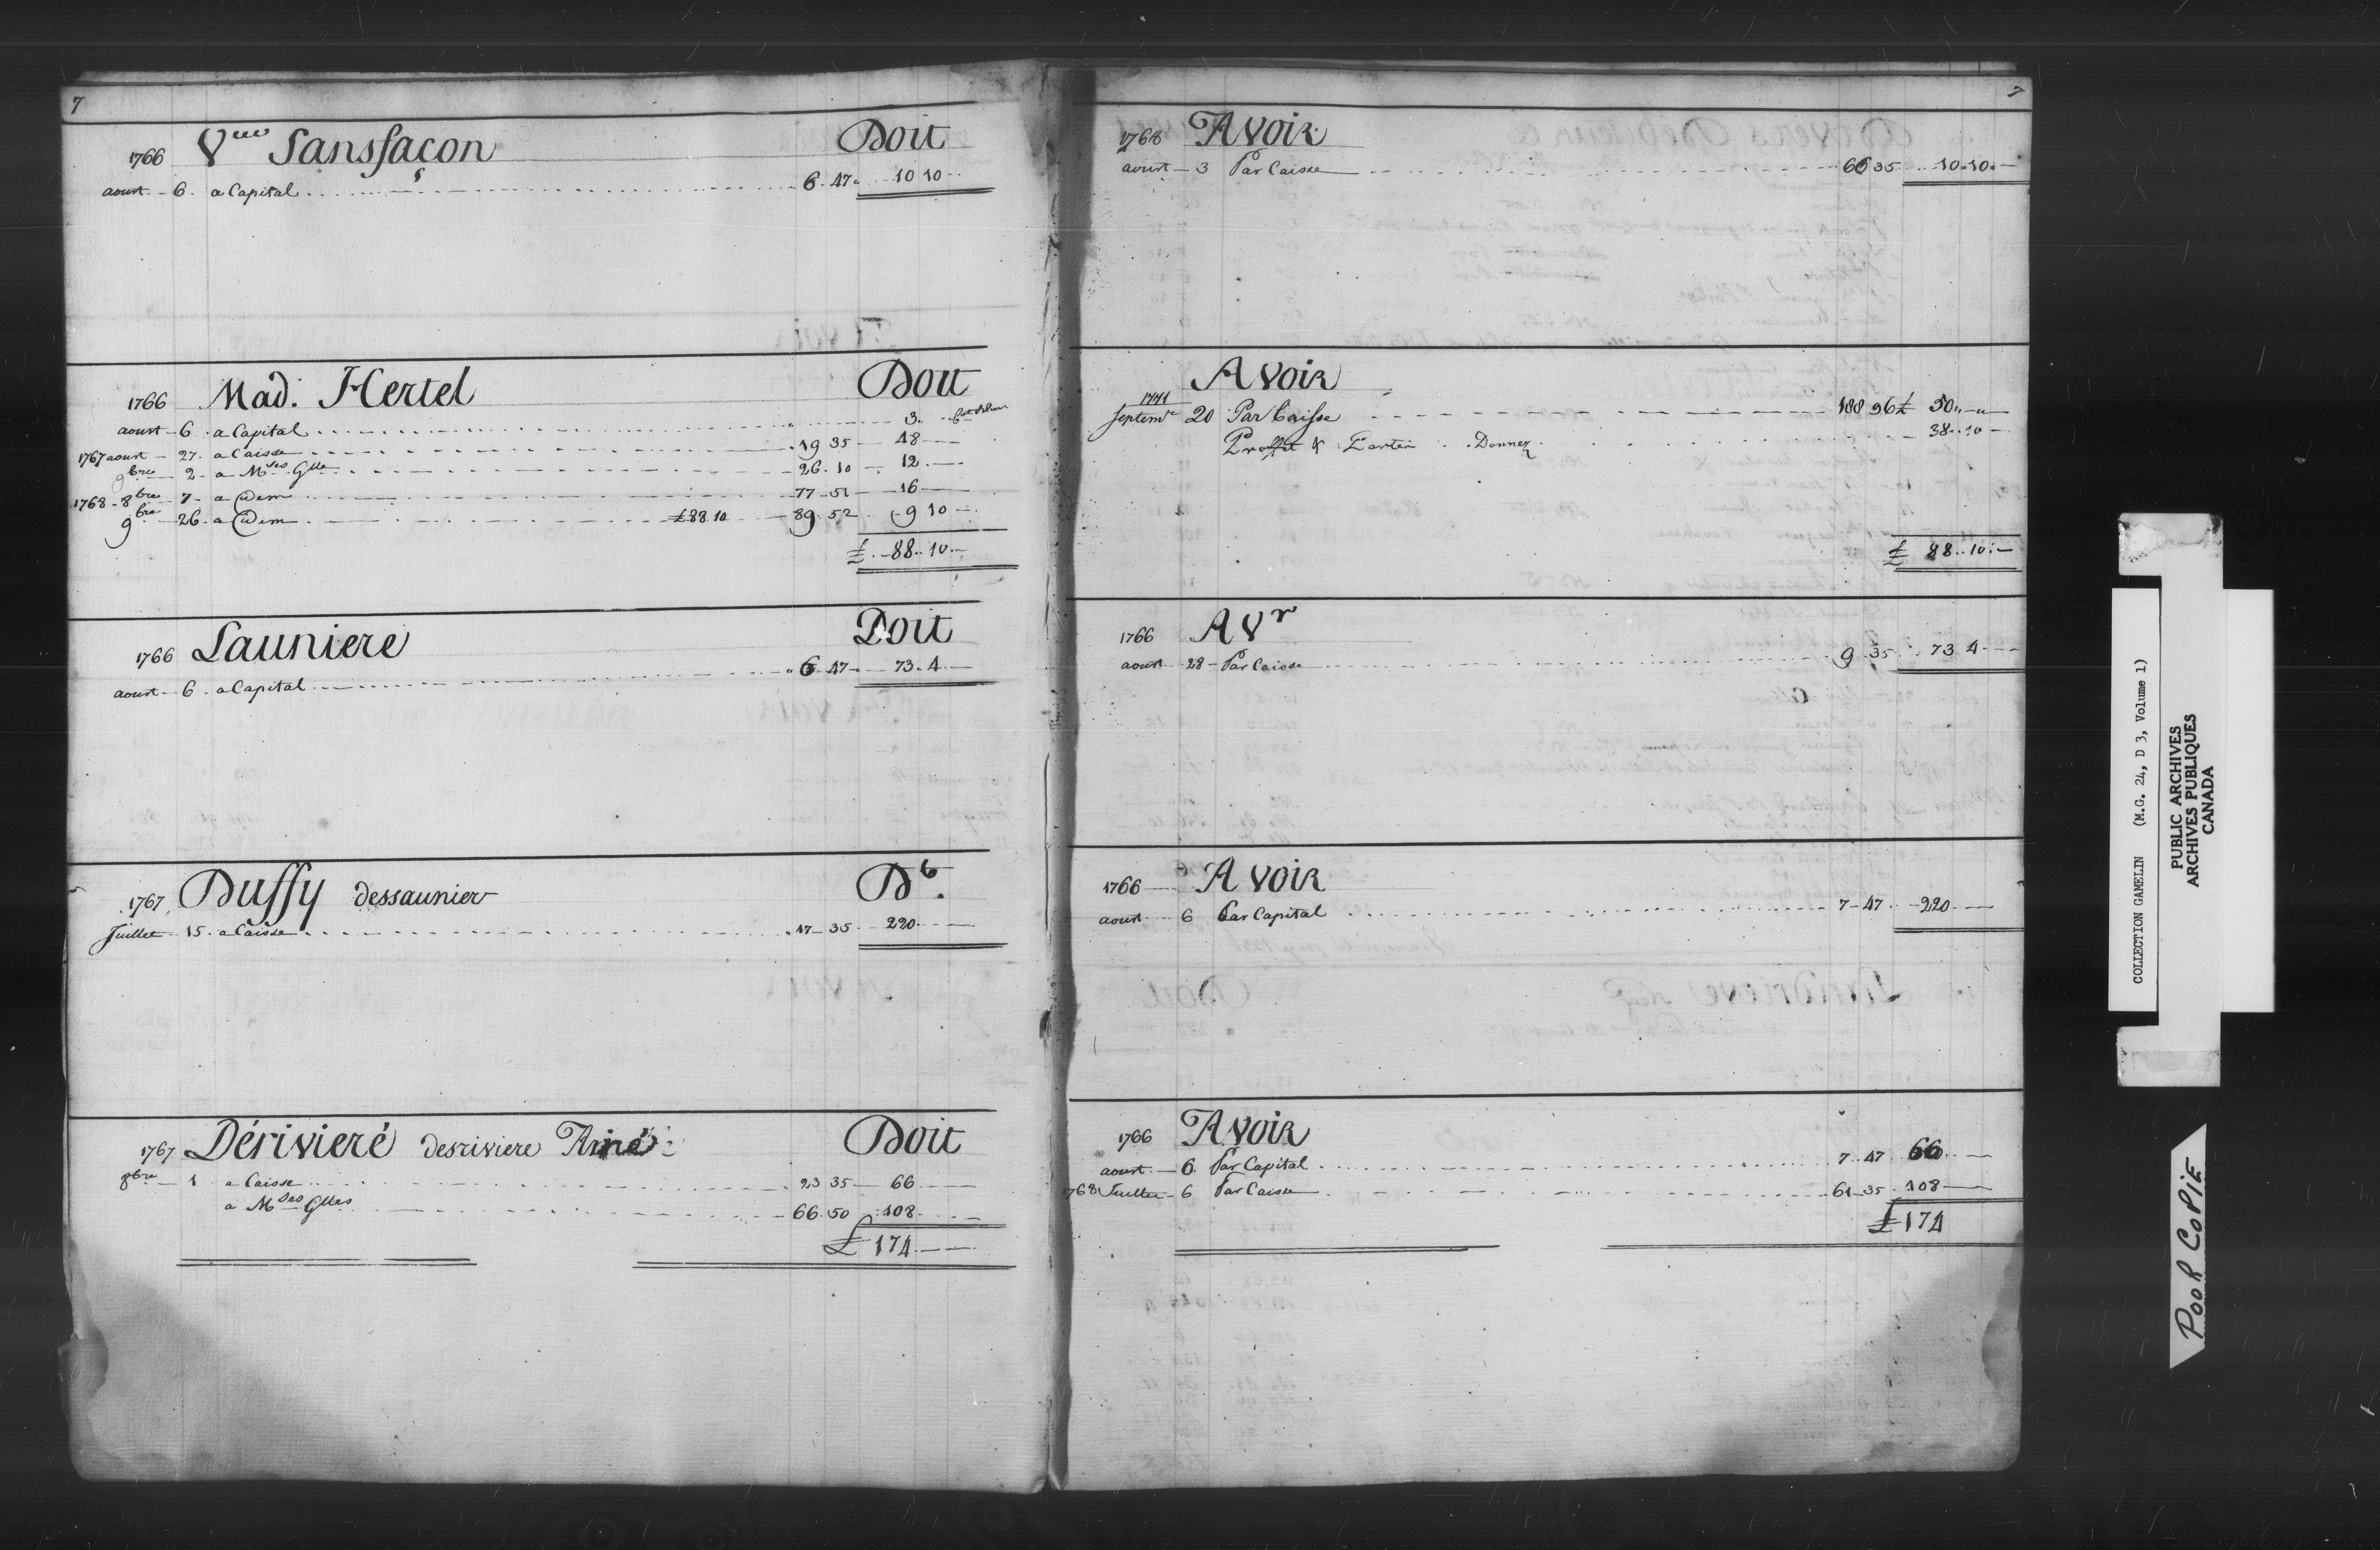 7
1766 Vve Sansfaçon Doit
aoust 6 a Capital 6 47 10 10
1766 Mad. Hertel Doit
aoust 6 a Capital 3
1767 aoust 27 a Caisse 19 35 48
9bre 2 a Mdes Glles 26 10 12
1768 8bre 7 a Idem 77 51 16
9bre 26 a Idem £88 10 89 52 9 10
£ 88 10
1766 Launiere Doit
aoust 6 a Capital 6 47 73 4
1767 Duffy dessaunier Dt.
Juillet 15 a Caisse 17 35 220
1767 Dérivieré desriviere Ainé Doit
8bre 1 a Caisse 23 35 66
a Mdes Glles 66 50 108
£ 174
7
1768 Avoir
aoust 3 Par Caisse 66 35 10 10
Avoir
1771
Septembre 20 Par Caisse 188 96 £ 50
Proffit & Perte Donnez 38 10
£ 88 10
1766 AVr
aoust 28 Par Caisse 9 35 73 4
1766 Avoir
aoust 6 Par Capital 7 47 220
1766 Avoir
aoust 6 Par Capital 7 47 66
1768 Juillet 6 Par Caisse 61 35 108
£ 174
COLLECTION GAMELIN (M.G. 24, D 3, Volume 1)
PUBLIC ARCHIVES
ARCHIVES PUBLIQUES
CANADA
POOR COPIE